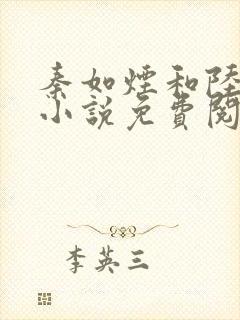 秦如煙和陸
小說免費閱
李英三